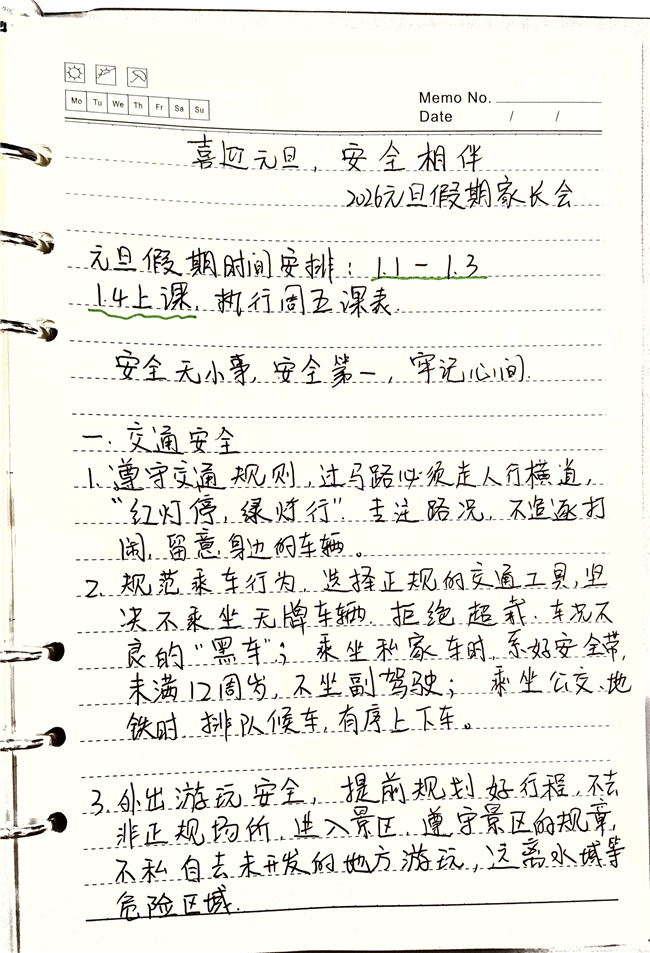 Mo Tu We Th Fr Sa Su
Memo No.
Date / /
喜迎元旦，安全相伴
2026元旦假期家长会
元旦假期时间安排：1.1－1.3
1.4上课，执行周五课表.
安全无小事，安全第一，牢记心间.
一. 交通安全
1. 遵守交通规则，过马路必须走人行横道，
“红灯停，绿灯行”. 专注路况，不追逐打
闹，留意身边的车辆。
2. 规范乘车行为，选择正规的交通工具，坚
决不乘坐无牌车辆. 拒绝超载、车况不
良的“黑车”； 乘坐私家车时，系好安全带，
未满12周岁，不坐副驾驶； 乘坐公交、地
铁时 排队候车，有序上下车。
3. 外出游玩安全，提前规划好行程，不去
非正规场所，进入景区，遵守景区的规章，
不私自去未开发的地方游玩，远离水域等
危险区域.